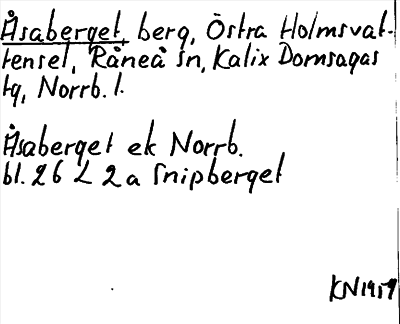 Åsaberget, berg, Östra Holmsvat-
tensel, Råneå sn, Kalix Domsagas
tg, Norrb. l.
Åsaberget ek Norrb.
bl. 26 L 2a Snipberget
KN 1959